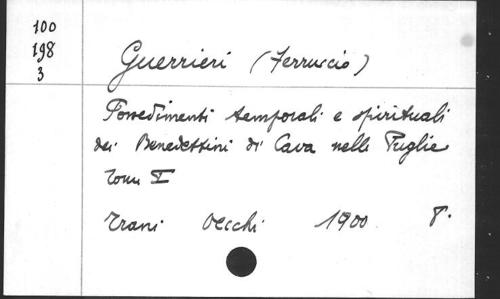 100
198
3
Guerrieri (Ferruccio)
Possedimenti temporali e spirituali
dei Benedettini di Cava nelle Puglie
Tome I
Trani Vecchi 1900 8.